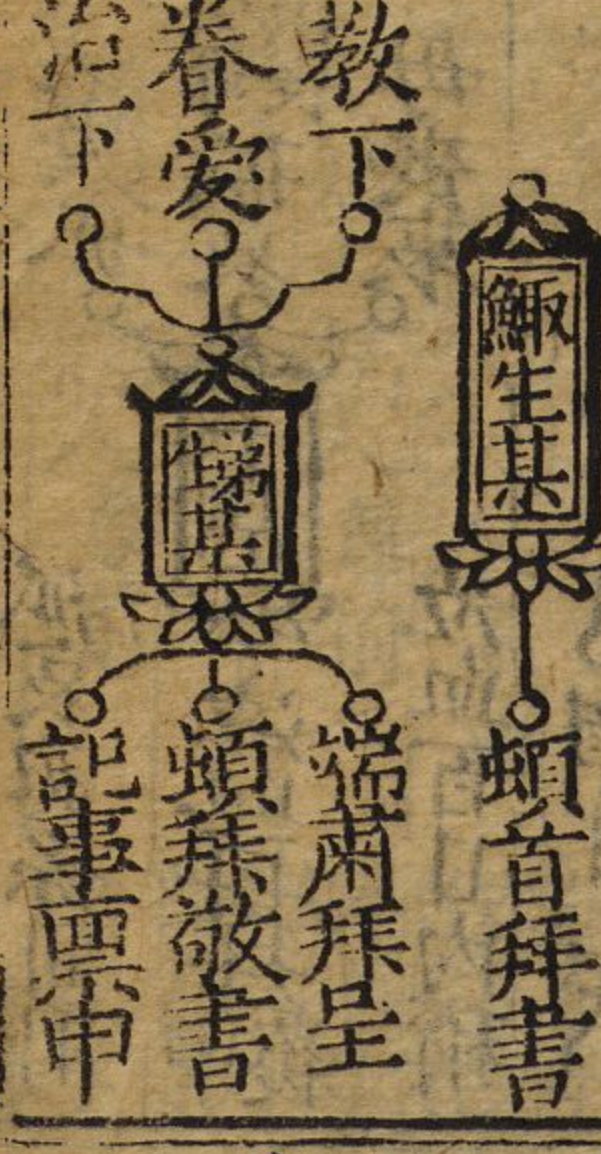 鯫生某
頓首拜書
教下
眷愛
治下
弟生某
端肅拜呈
頓拜敬書
記事稟申